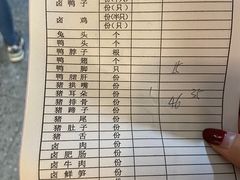 卤鸭子 份(只)
份(只)
卤鸡 份(半只)
份(只)
兔头 个
鸭头 个
鸭脖子 根
鸭翅 个
鸭脚 只 15
鸭胗肝 份
猪拱嘴 份
猪耳朵 份 1 35
猪排骨 份 46
猪蹄子 份
猪尾 份
猪肚子 份
猪舌 份
卤肉 份
卤肥肠 份
卤牛肉 份
卤鲜笋 份